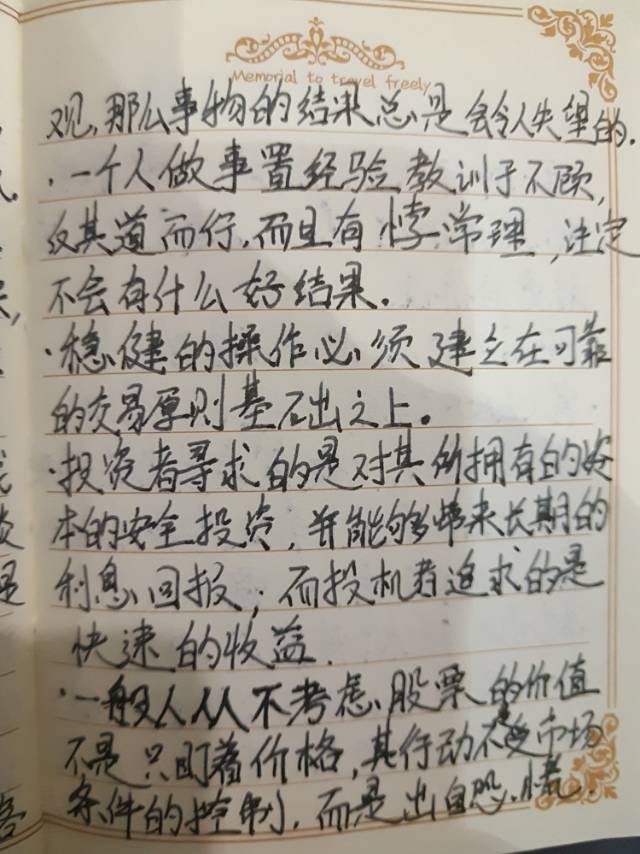 Memorial to travel freely
观,那么事物的结果总是会令人失望的.
·一个人做事置经验教训于不顾,
反其道而行,而且有悖常理,注定
不会有什么好结果。
·稳健的操作必须建立在可靠
的交易原则基石出之上。
·投资者寻求的是对其所拥有的资
本的安全投资,并能够带来长期的
利息回报;而投机者追求的是
快速的收益.
·一般人从不考虑股票的价值
不是只盯着价格,其行动不是受市场
条件的控制,而是出自恐慌.